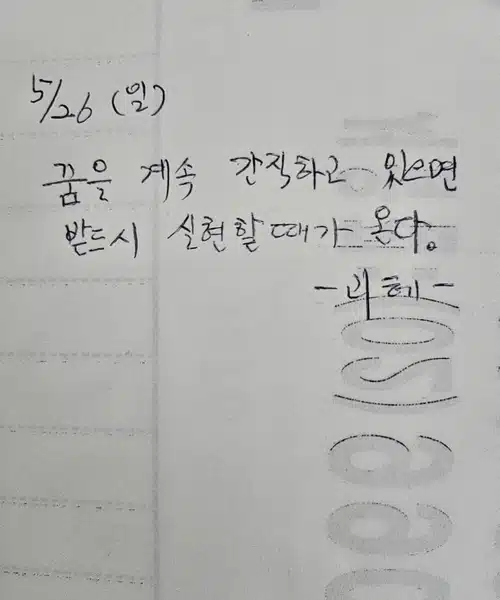 5/26 (일)
꿈을 계속 간직하고 있으면
받드시 실현할 때가 온다.
-괴테-